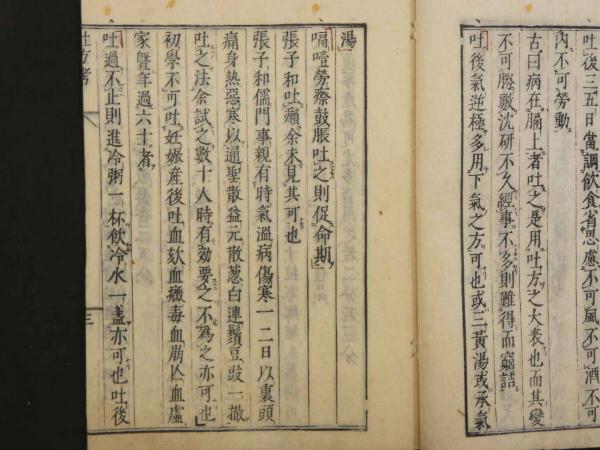 吐後三五日當調飲食省思慮不可風不可酒不可
内不可勞動
古曰病在膈上者吐之是用吐方之大表也而其變
不可勝數沈研不久經事不多則難得而窮詰
吐後氣逆極多用下氣之方可也或三黃湯或承氣
湯
嗝噎勞瘵鼓脹吐之則促命期
張子和吐癪余未見其可也
張子和儒門事親有時氣溫病傷寒一二日以裏頭
痛身熱惡寒以通聖散益元散葱白連鬚豆豉一撮
吐之法余試之數十人時有効要之不爲之亦可也
初學不可吐妊娠產後吐血欬血癥毒血崩亾血虛
家曁年過六十者
吐過不止則進冷粥一杯飲冷水一盞亦可也吐後
吐方考
三